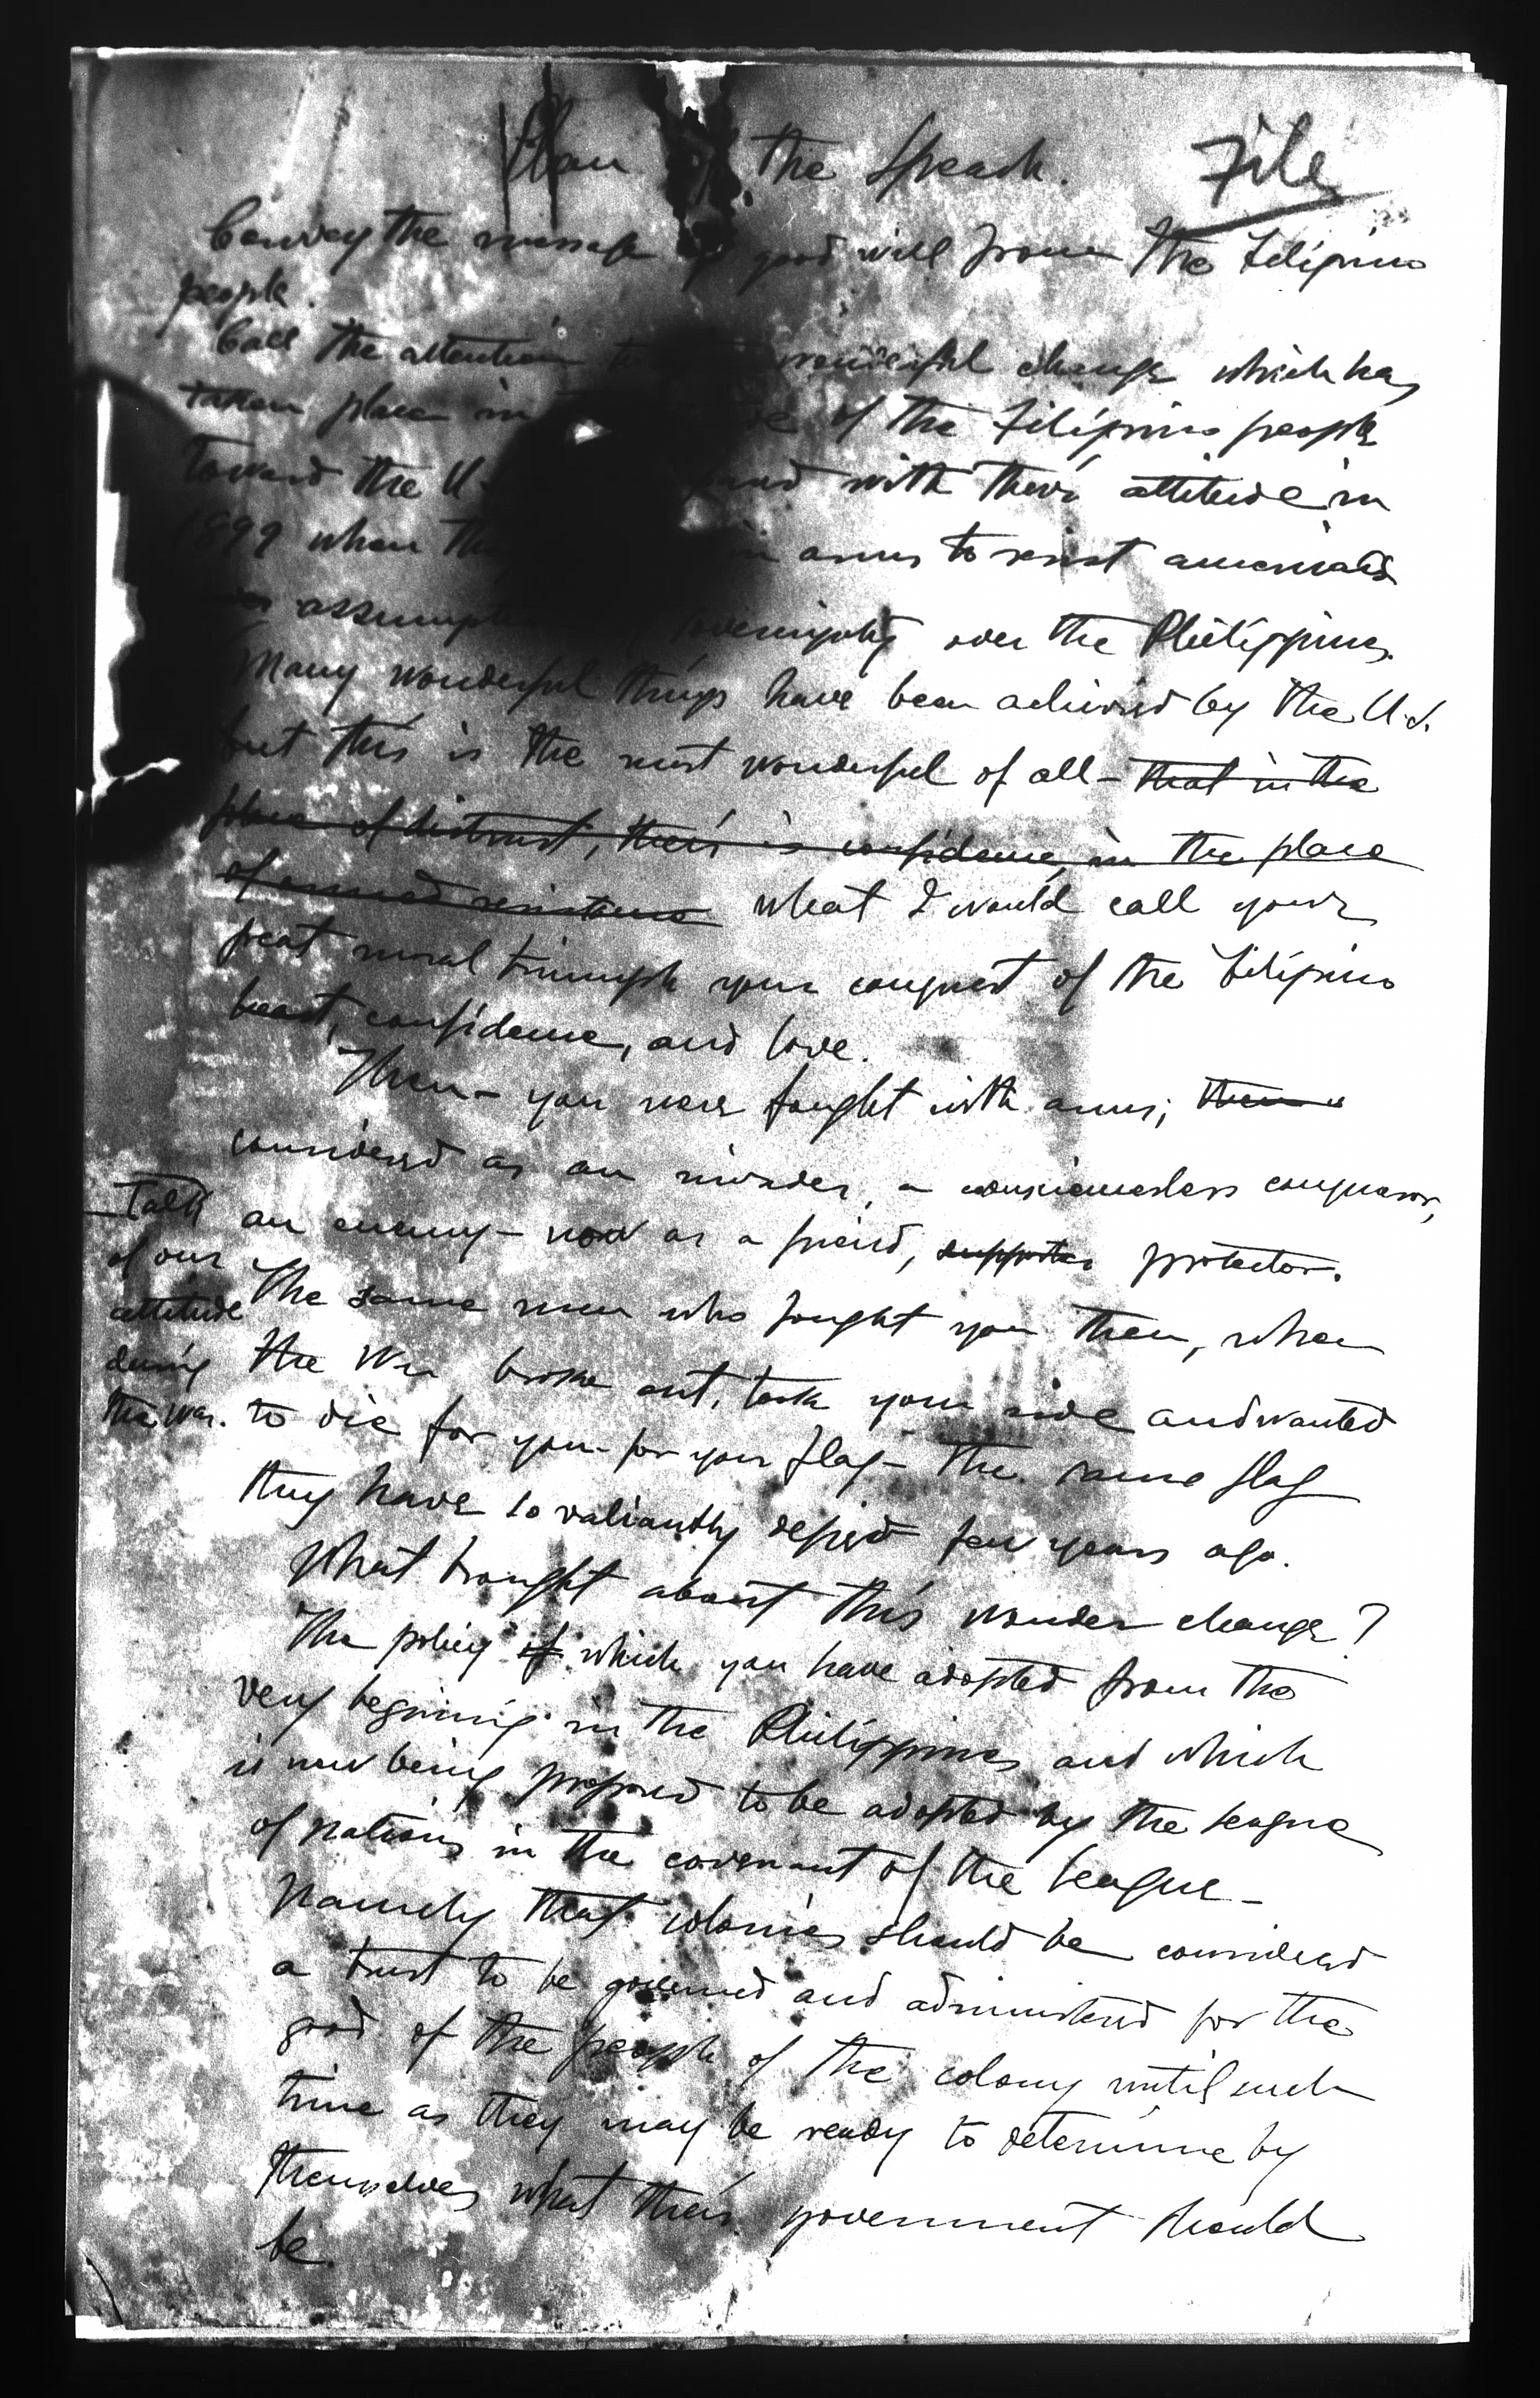 Plan of the Speach.
File
Convey the message of good will from the Filipino
people.
Call the attention to wonderful change which has
taken place in of the Filipino people
toward the U. with their attitude in
1899 when in arms to resist americas
assumption sovereignty over the Philippines.
Many wonderful things have been achieved by the U.S.
but this is the most wonderful of all – that in the
place of distrust, their is confidence, in the place
of armed resistance what I would call your
great moral triumph your conquest of the Filipino
heart, confidence, and love.
Then – you were fought with arms; then
considered as an invader, a consciousless conqueror,
an enemy – now as a friend, supporter protector.
Talk
of our
attitude
during
the war.
The same men who fought you then, when
the War broke out, took your side and wanted
to die for you – for your flag – the same flag
they have so valiantly defied few years ago.
What brought about this wonder change?
The policy of which you have adopted from the
very begining in the Philippines and which
is now being proposed to be adopted by the league
of nations in the covenant of the league –
Namely that colonies should be considered
a trust to be governed and administered for the
good of the people of the colony until such
time as they may be ready to determine by
themselves what their government should
be.